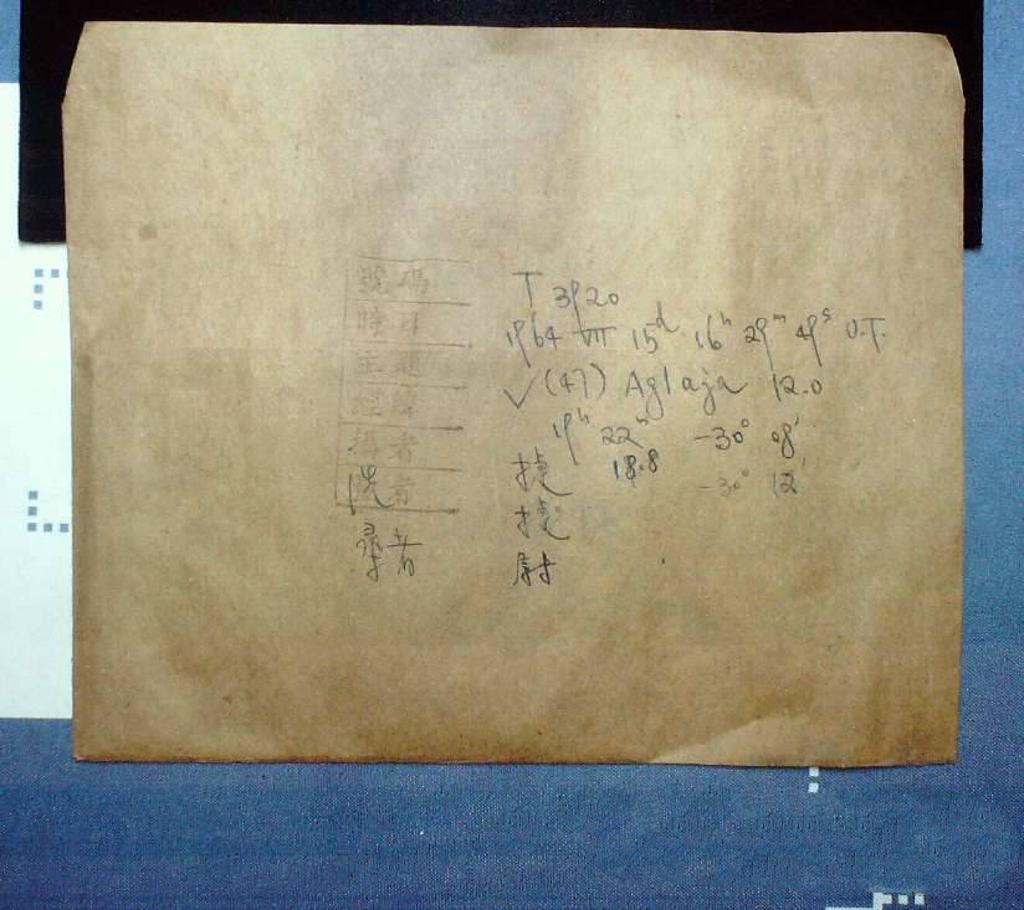 號碼 T 3920
時日 1964 VII 15d 16h 29m 49s U.T.
主題 ✓(47) Aglaja 12.0
經緯 19h 22m -30° 08'
18.8 -30° 12'
攝者 捷
洗者 捷
尋者 尉